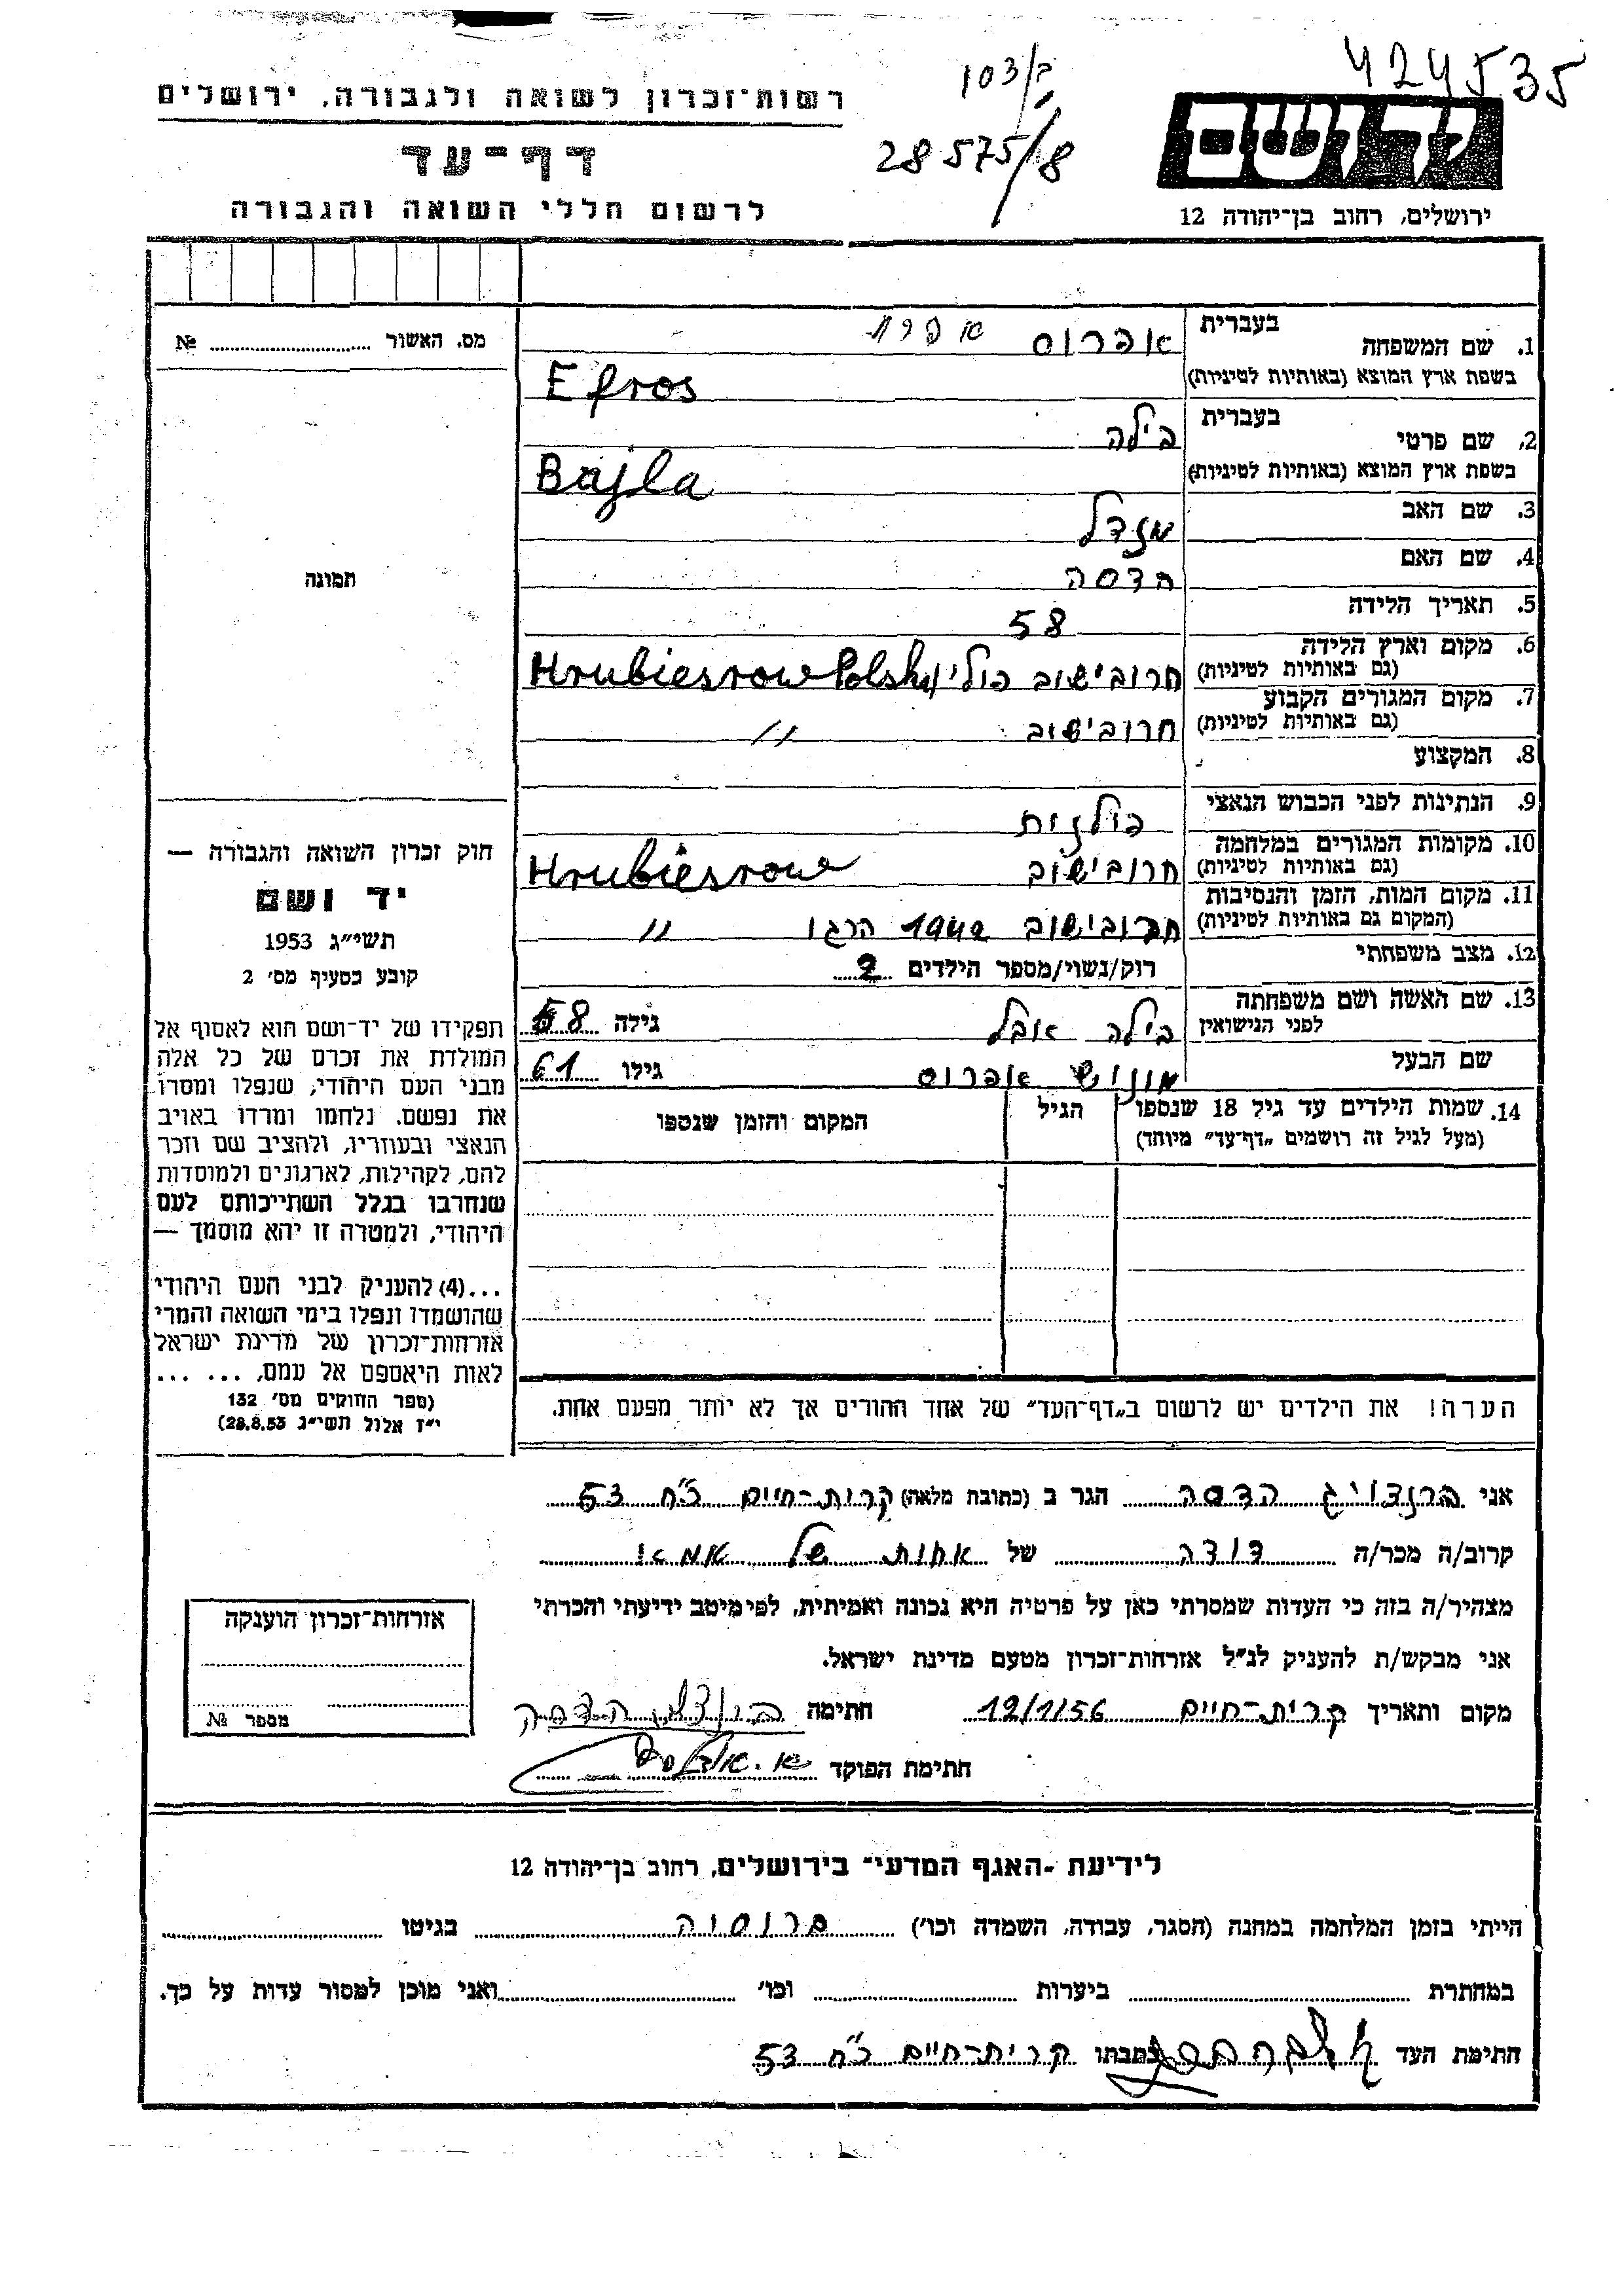 424535
103/ב
28575/8
יד ושם
ירושלים, רחוב בן־יהודה 12
רשות־זכרון לשואה ולגבורה, ירושלים
דף־עד
לרשום חללי השואה והגבורה
מס. האשור № 
תמונה
1. שם המשפחה בעברית אפרוס אפרת
בשפת ארץ המוצא (באותיות לטיניות) Efros
2. שם פרטי בעברית בילה
בשפת ארץ המוצא (באותיות לטיניות) Bajla
3. שם האב מנדל
4. שם האם הדסה
5. תאריך הלידה 58
6. מקום וארץ הלידה (גם באותיות לטיניות) חרובישוב פולין Hrubiesrow Polska
7. מקום המגורים הקבוע (גם באותיות לטיניות) חרובישוב "
8. המקצוע
9. הנתינות לפני הכבוש הנאצי פולנית
10. מקומות המגורים במלחמה (גם באותיות לטיניות) חרובישוב Hrubiesrow
11. מקום המות, הזמן והנסיבות (המקום גם באותיות לטיניות) חרובישוב 1942 הרגו "
12. מצב משפחתי רוק/נשוי/מספר הילדים 2
13. שם האשה ושם משפחתה לפני הנישואין בילה אבל גילה 58
שם הבעל מוניש אפרוס גילו 61
14. שמות הילדים עד גיל 18 שנספו הגיל המקום והזמן שנספו
(מעל לגיל זה רושמים „דף־עד" מיוחד)
הערה! את הילדים יש לרשום ב„דף־העד" של אחד ההורים אך לא יותר מפעם אחת.
חוק זכרון השואה והגבורה —
יד ושם
תשי״ג 1953
קובע בסעיף מס׳ 2
תפקידו של יד־ושם הוא לאסוף אל
המולדת את זכרם של כל אלה
מבני העם היהודי, שנפלו ומסרו
את נפשם. נלחמו ומרדו באויב
הנאצי ובעוזריו, ולהציב שם וזכר
להם, לקהילות, לארגונים ולמוסדות
שנחרבו בגלל השתייכותם לעם
היהודי, ולמטרה זו יהא מוסמך —
...(4) להעניק לבני העם היהודי
שהושמדו ונפלו בימי השואה והמרי
אזרחות־זכרון של מדינת ישראל
לאות היאספם אל עמם, ... ...
(ספר החוקים מס׳ 132
י״ז אלול תשי״ג 28.8.53)
אני ברנדויג הדסה הגר ב (כתובת מלאה) קרית־חיים כ״ח 53
קרוב/ה מכר/ה דודה של אחות של אמא!
מצהיר/ה בזה כי העדות שמסרתי כאן על פרטיה היא נכונה ואמיתית, לפי מיטב ידיעתי והכרתי
אני מבקש/ת להעניק לנ״ל אזרחות־זכרון מטעם מדינת ישראל.
מקום ותאריך קרית־חיים 12/1/56 חתימה הדסה
חתימת הפוקד
אזרחות־זכרון הוענקה
מספר №
לידיעת ״האגף המדעי״ בירושלים, רחוב בן־יהודה 12
הייתי בזמן המלחמה במחנה (הסגר, עבודה, השמדה וכו׳) ברוסיה בגיטו
במחתרת ביערות וכו׳ ואני מוכן למסור עדות על כך.
חתימת העד כתבתו קרית־חיים כ״ח 53